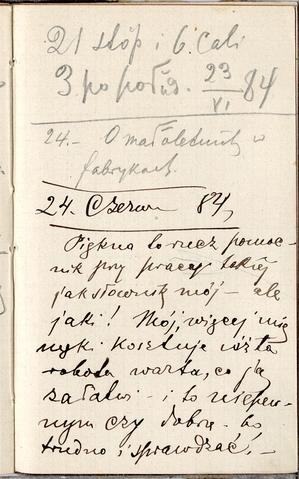 21 stóp i 6. Cali
3. po połud. 23/VI 84
24.- O małoletnich w
fabrykach.
24. Czerw 84,
Piękna to rzecz pomoc-
nik przy pracy takiej
jak słownik mój – ale
jaki! Mój, więcej mię
nyki kosztuje niż ta
robota warta, co ja
załatwi – i to niepew-
nym czy dobrze. bo
trudno i sprawdzać! –